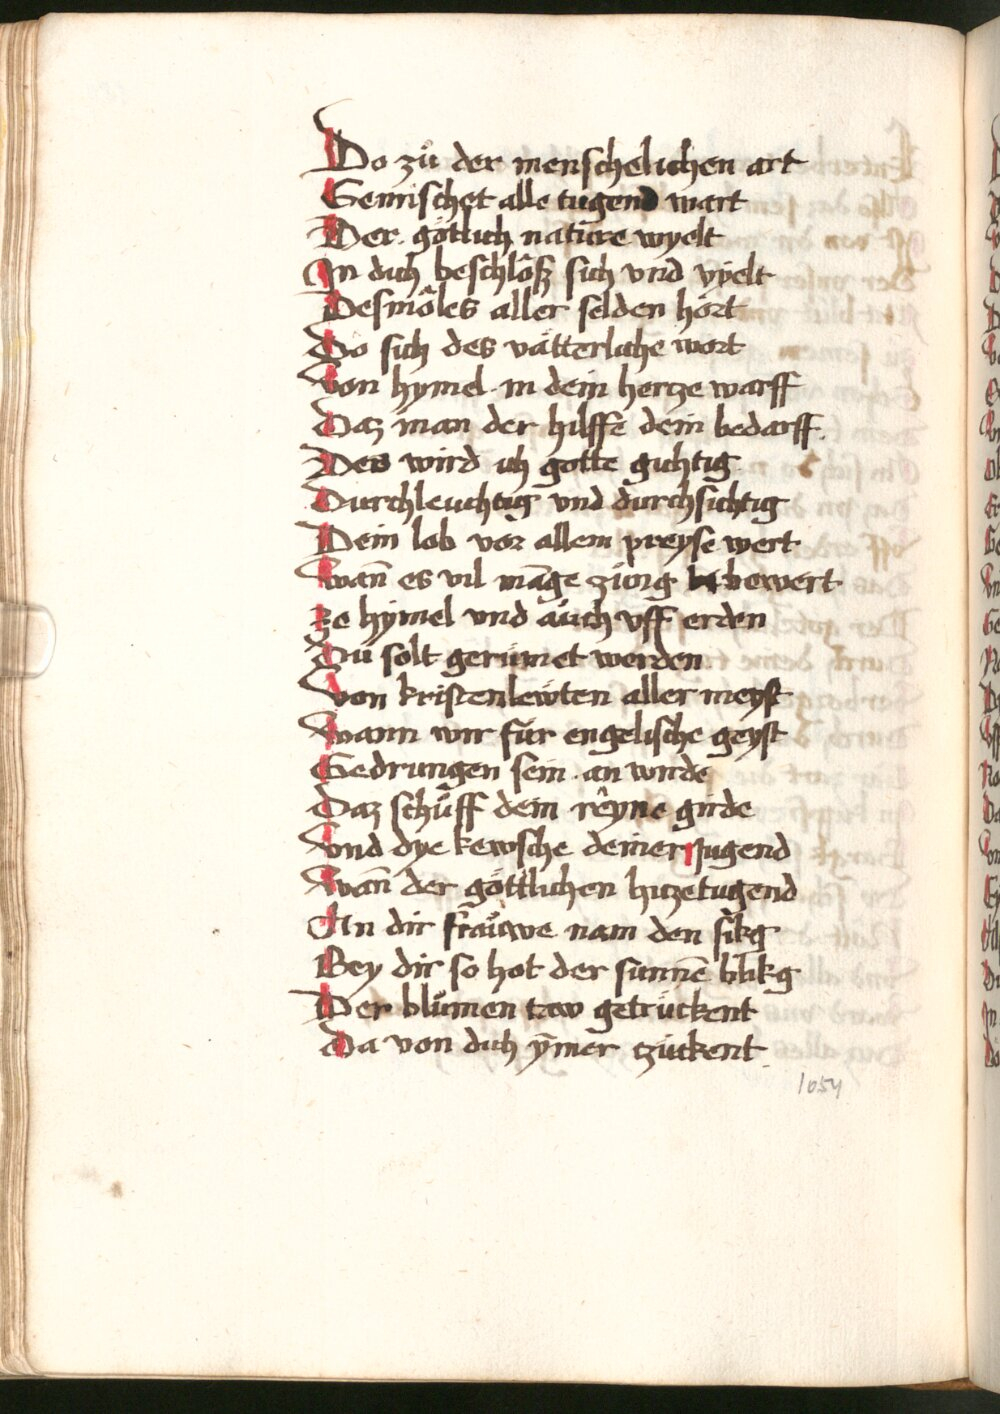 Do zů der menschelichen art
Gemischet alle tugend wart
Der götlich nature wyelt
In dich beschlôß sich vnd vyelt
Desmâles aller selden hort
Do sich des vätterliche wort
Von hymel in dein hertze warff
Daz man der hilffe dein bedarff
Des wird ich gotte gichtig
Durchleuchtig vnd durchsichtig
Dein lob vor allem preyse wert
Wañ es vil mãge zung bewert
Ze hymel vnd auch vff erden
Du solt gerumet werden
Von kristenlewten aller meyst
Wann wir für engelische geyst
Gedrungen sein an wirde
Daz schuff dein rêyne girde
Vnd dye kewsche deiner Jugend
Wañ der göttlichen hitze tugend
An dir frauwe nam den
Bey dir so hot der sunnẽ
Der blumen taw getruckent
Da von dich ymer zuckent
1054